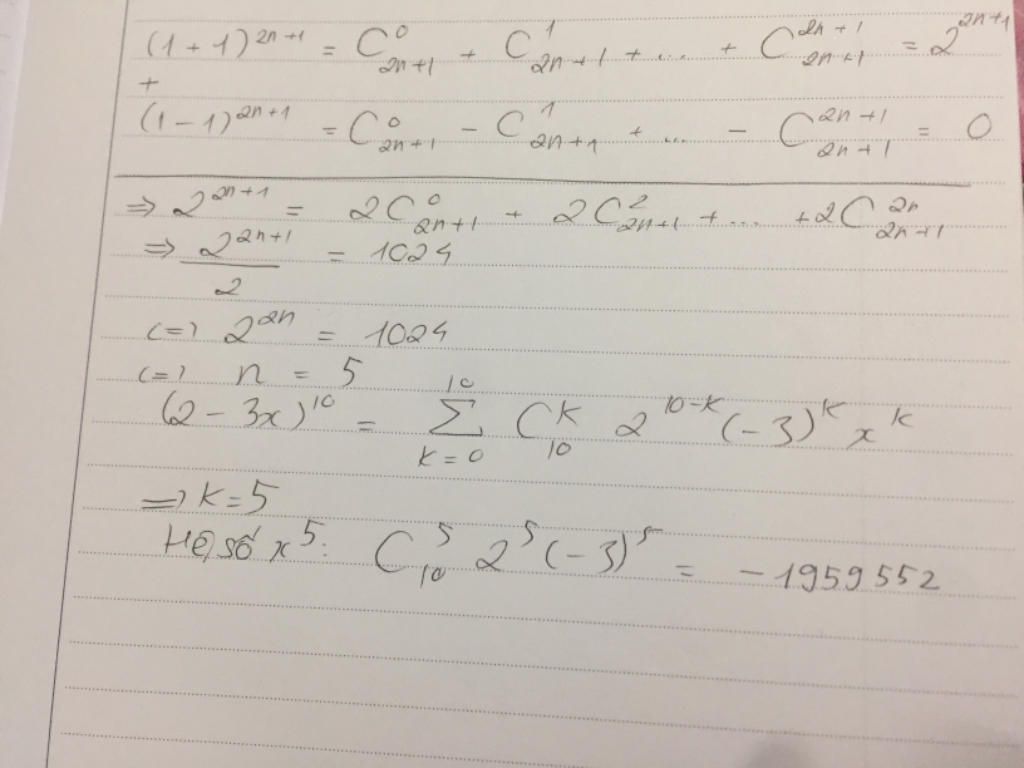 (1+1)^{2n+1} = C^0_{2n+1} + C^1_{2n+1} + ... + C^{2n+1}_{2n+1} = 2^{2n+1}
+
(1-1)^{2n+1} = C^0_{2n+1} - C^1_{2n+1} + ... - C^{2n+1}_{2n+1} = 0
⇒ 2^{2n+1} = 2C^0_{2n+1} + 2C^2_{2n+1} + ... + 2C^{2n}_{2n+1}
⇒ \frac{2^{2n+1}}{2} = 1024
(=) 2^{2n} = 1024
(=) n = 5
(2-3x)^{10} = \sum_{k=0}^{10} C^k_{10} 2^{10-k} (-3)^k x^k
⇒ k=5
Hệ số x^5: C^5_{10} 2^5 (-3)^5 = -1959552